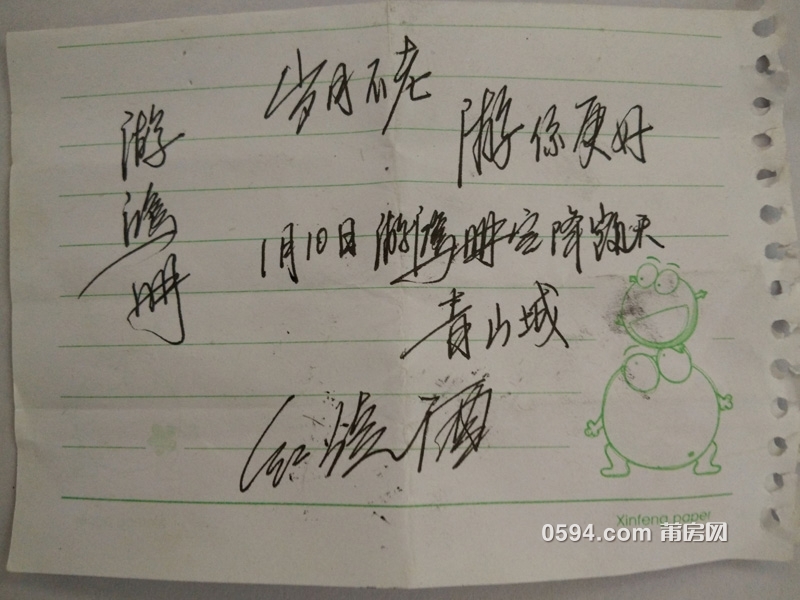 岁月不老
游你更好
游鸿明
1月10日游鸿明空降
天
青山城
Xinfeng paper
0594.com 莆房网